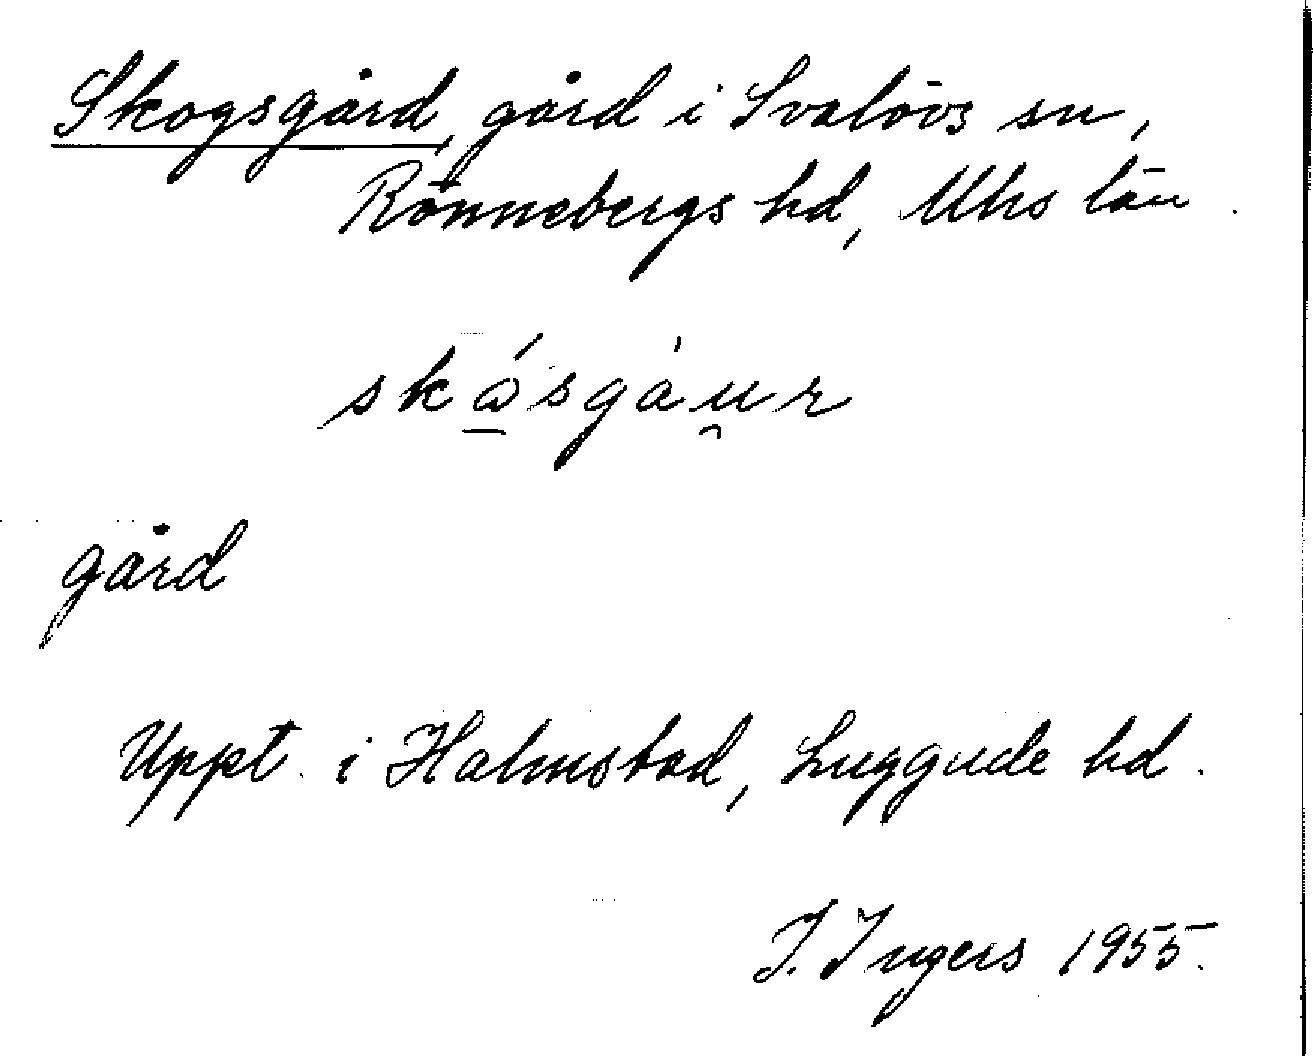 Skogsgård, gård i Svalövs sn,
Rönnebergs hd, Mhs län.
skǻ̱sgàu̯r
gård
Uppt. i Halmstad, Luggude hd.
I. Ingers 1955.